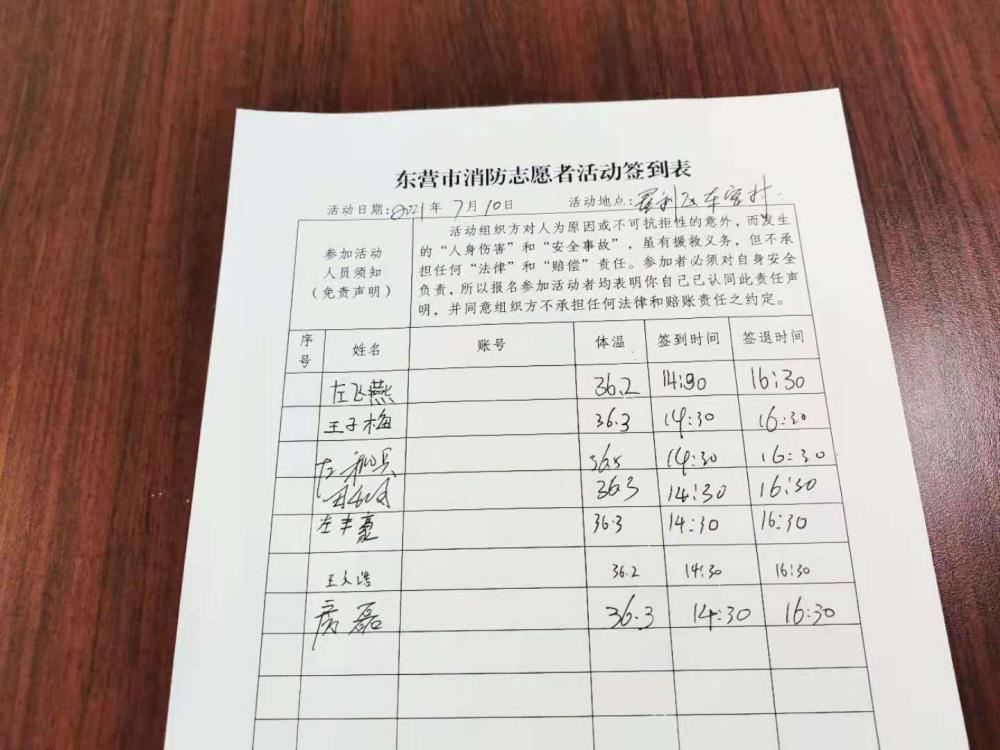 东营市消防志愿者活动签到表
活动日期：2021年 7月10日 活动地点：垦利区
参加活动
人员须知
（免责声明）
活动组织方对人为原因或不可抗拒性的意外，而发生
的“人身伤害”和“安全事故”，虽有援救义务，但不承
担任何“法律”和“赔偿”责任。参加者必须对自身安全
负责，所以报名参加活动者均表明你自己已认同此责任声
明，并同意组织方不承担任何法律和赔账责任之约定。
序号 姓名 账号 体温 签到时间 签退时间
左飞燕 36.2 14:30 16:30
王子梅 36.3 14:30 16:30
左 36.5 14:30 16:30
36.3 14:30 16:30
左丰豪 36.3 14:30 16:30
王文浩 36.2 14:30 16:30
房磊 36.3 14:30 16:30